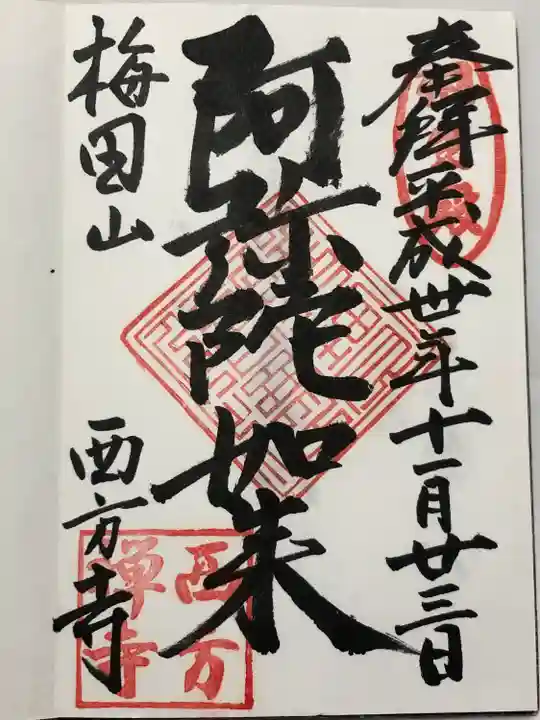 奉拝平成卅年十一月廿三日
阿弥陀如来
梅田山
西方寺
西方
禅寺